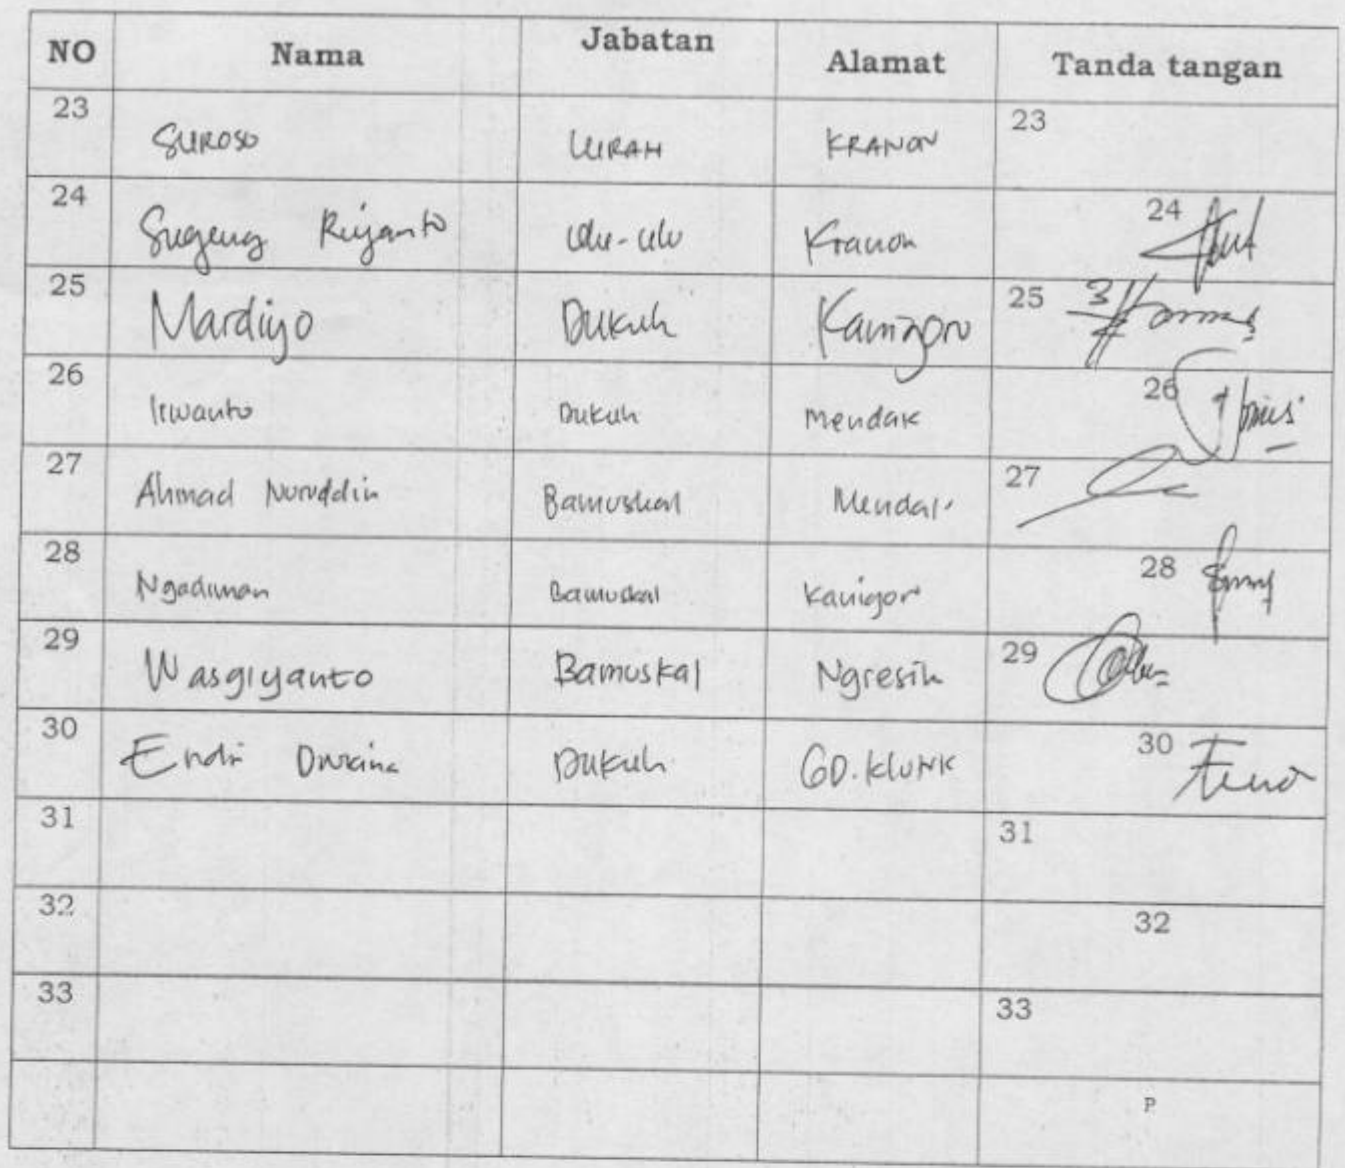 NO Nama Jabatan Alamat Tanda tangan
23 SUROSO LURAH KRANON 23
24 Sugeng Riyanto Ulu-ulu Kranon 24
25 Mardiyo Dukuh Kanigoro 25
26 Irwanto Dukuh Mendak 26
27 Ahmad Nuruddin Bamuskal Mendak 27
28 Ngadiman Bamuskal Kanigor 28
29 Wasgiyanto Bamuskal Ngresih 29
30 Endri Dukuh GD. KLUNK 30
31 31
32 32
33 33
P